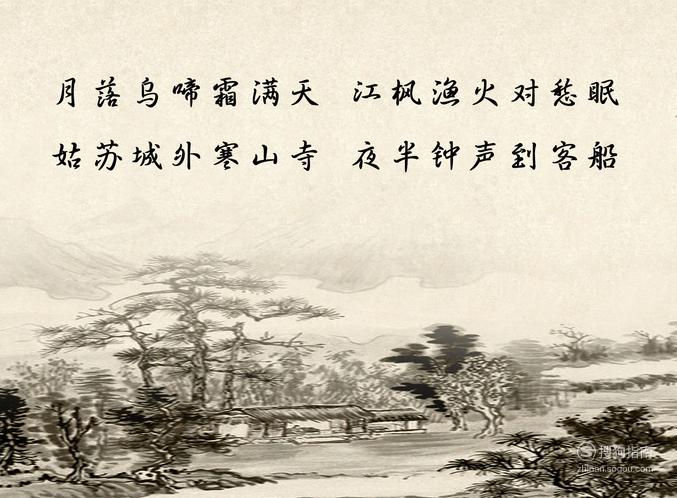 月落乌啼霜满天 江枫渔火对愁眠
姑苏城外寒山寺 夜半钟声到客船
搜狗指南
zhinan.sogou.com